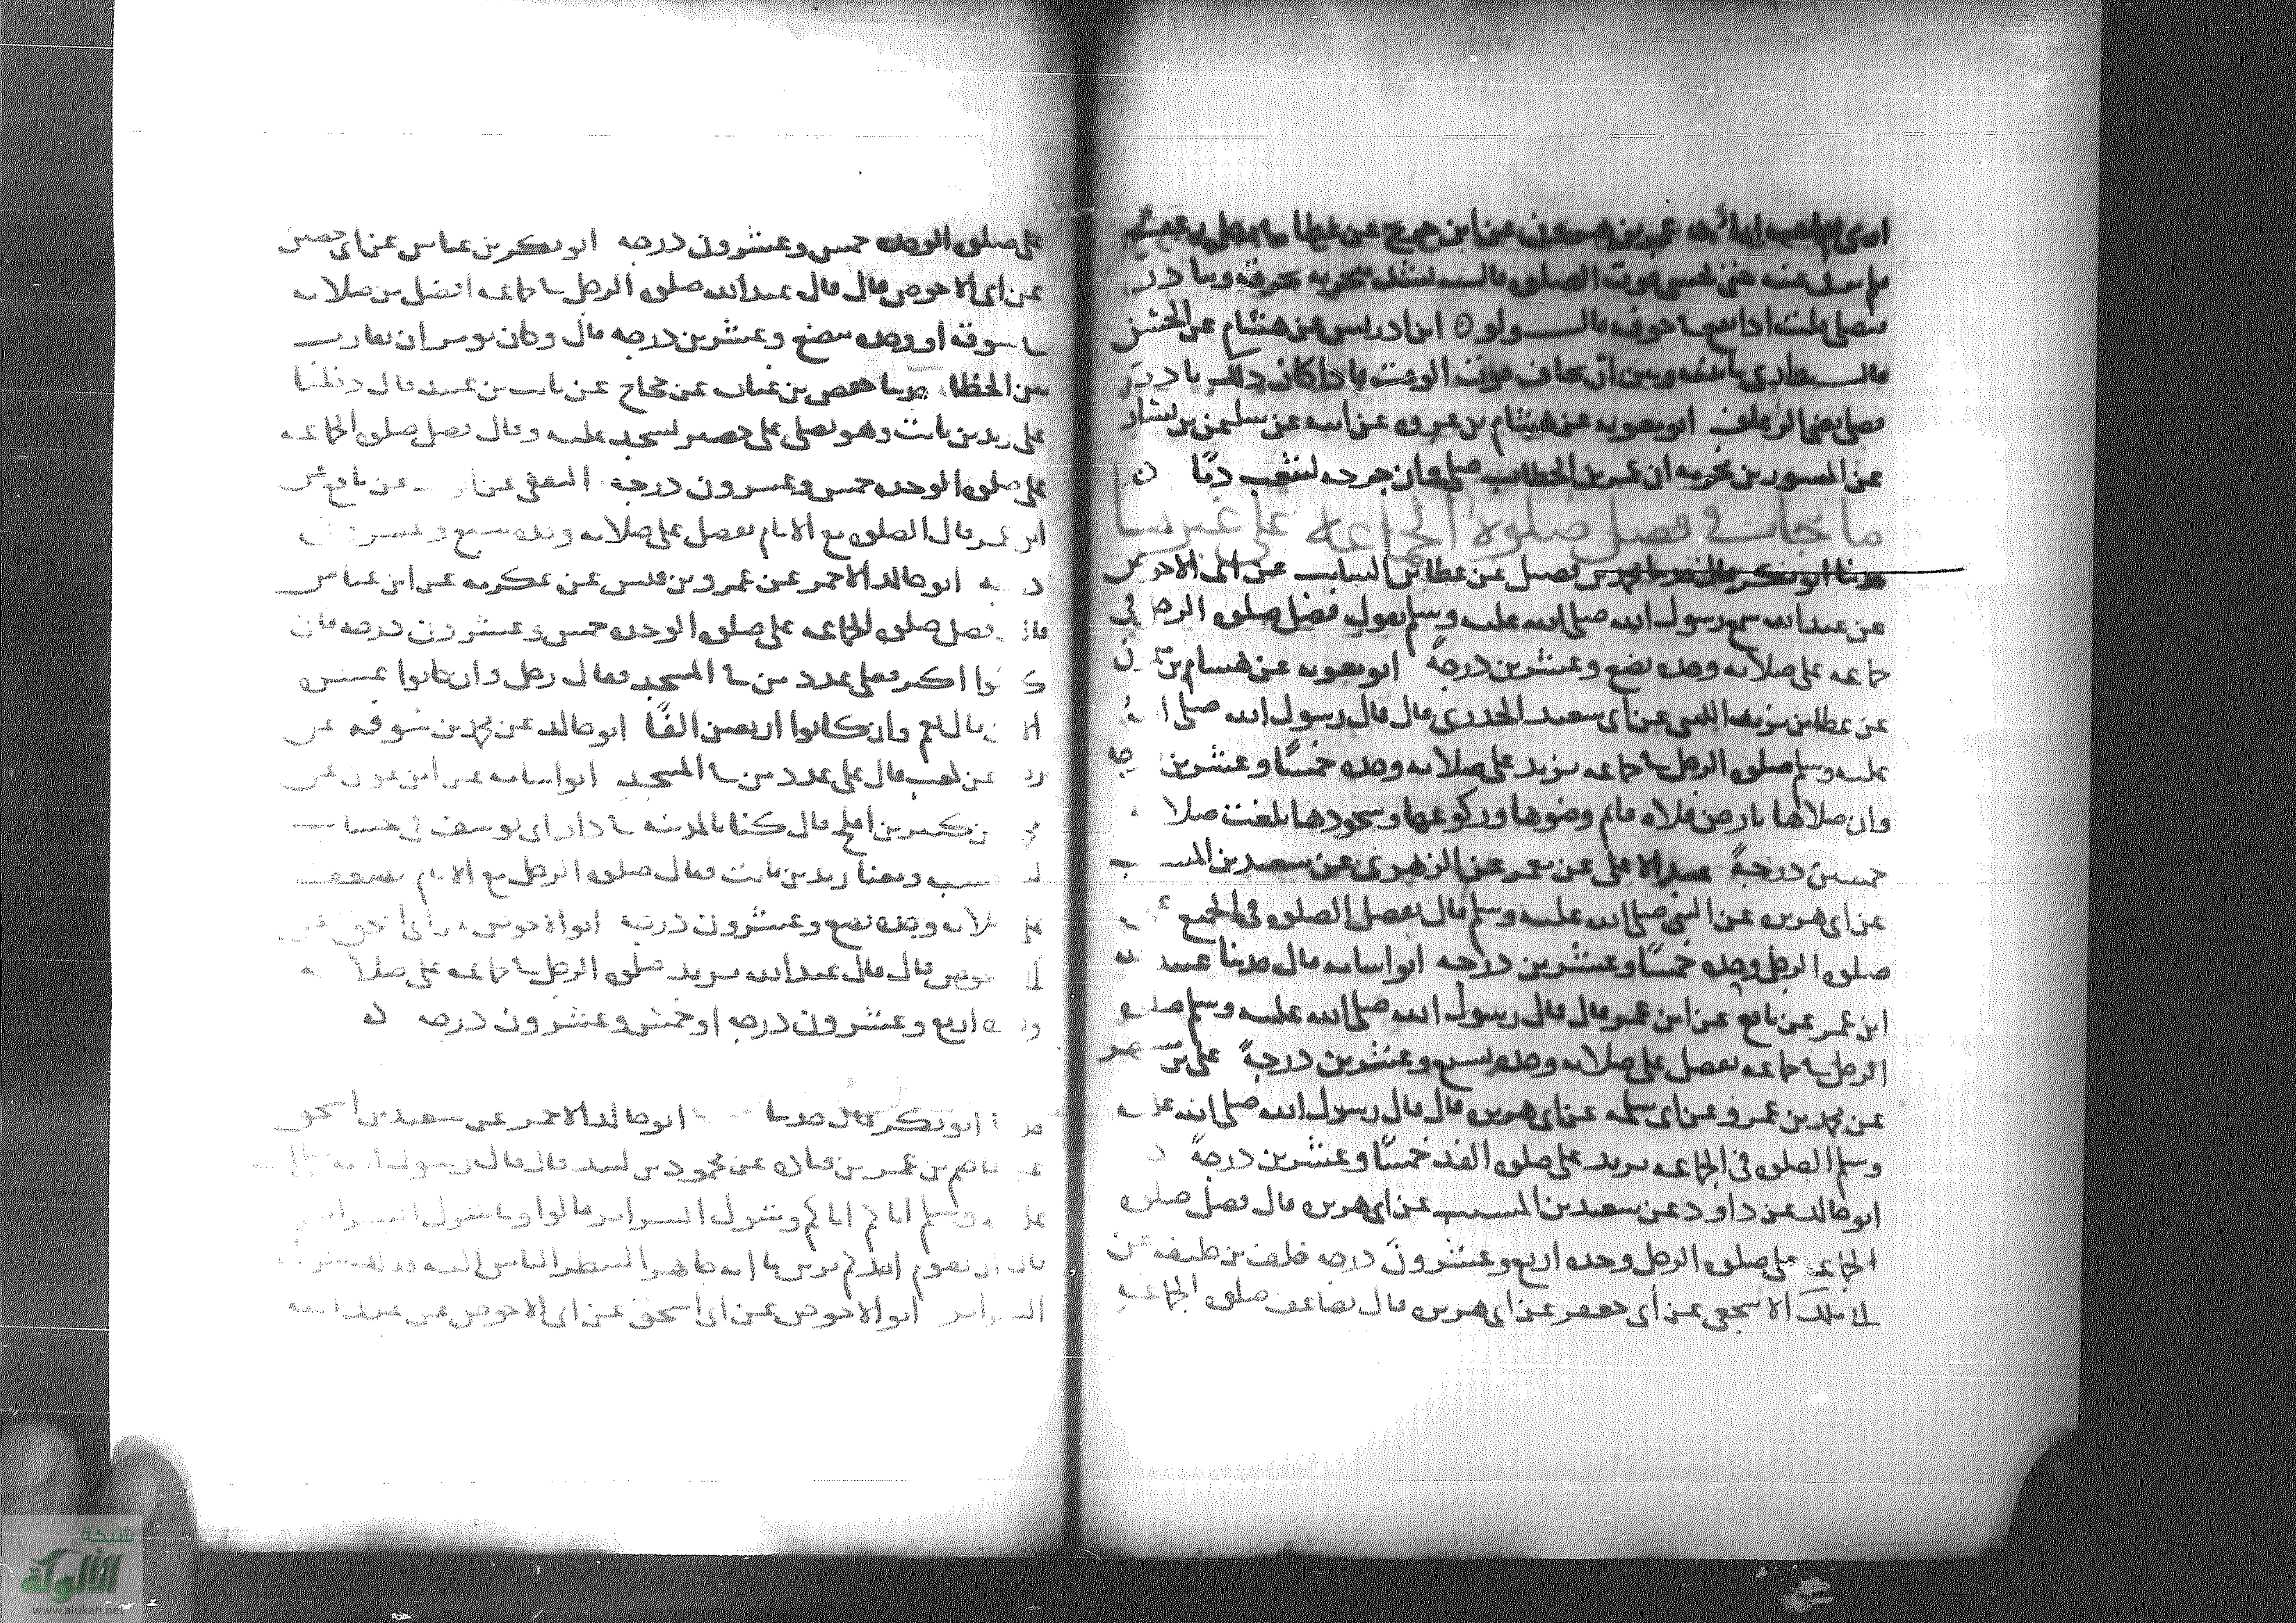 فلم يرقأ عنه حتى خشي فوت الصلوة قال
فصلى قلت اذا سمع جوفه قال ولو ابن ادريس عن هشام عن الحسن
قال يداري ما بينه وبين ان يخاف فوت الوقت فاذا كان ذلك
فصلى يعني الرعاف ابو معويه عن هشام بن عروه عن ابيه عن سليمن بن يسار
عن المسور بن مخرمه ان عمر بن الخطاب صلى وان جرحه ليثعب دمًا
ما جاء في فضل صلوة الجماعة على غيرها
حدثنا ابو بكر قال حدثنا محمد بن فضيل عن عطا بن السايب عن ابي الاحوص
عن عبد الله سمع رسول الله صلى الله عليه وسلم يقول فضل صلوه الرجل في
جماعه على صلاته وحده بضع وعشرين درجةً ابو معويه عن هشام بن
عن عطا بن يزيد الليثي عن ابي سعيد الخدري قال قال رسول الله صلى
عليه وسلم صلوه الرجل في جماعه يزيد على صلاته وحده خمسًا وعشرين جه
وان صلاها بارض فلاه فاتم وضوها وركوعها وسجودها بلغت صلا
خمسين درجةً عبد الاعلى عن معمر عن الزهري عن سعيد بن المسيب
عن ابي هريره عن النبي صلى الله عليه وسلم قال تفضل الصلوه في الجميع
صلوه الرجل وحده خمسًا وعشرين درجه ابو اسامه قال حدثنا عبيد الله
ابن عمر عن نافع عن ابن عمر قال قال رسول الله صلى الله عليه وسلم صلوه
الرجل في جماعه تفضل على صلاته وحده بسبع وعشرين درجةً على بن مسهر
عن محمد بن عمرو عن ابي سلمه عن ابي هريره قال قال رسول الله صلى الله عليه
وسلم الصلوه في الجماعه يزيد على صلوه الفذ خمسًا وعشرين درجةً
ابو خالد عن داود عن سعيد بن المسيب عن ابي هريره قال فضل صلوه
الجماعه على صلوه الرجل وحده اربع وعشرون درجه خلف بن خليفه عن
ابي ملك الاشجعي عن ابي جعفر عن ابي هريره قال تضاعف صلوه الجماعه
على صلوه الوحده خمس وعشرون درجه ابو بكر بن عياش عن ابي حصين
عن ابي الاحوص قال قال عبد الله صلوه الرجل في جماعه افضل من صلاته
في سوقه او وحده بضع وعشرين درجه قال وكان يومر ان يقارب
بين الخطا حدثنا حفص بن غياث عن حجاج عن ثابت بن عبيد قال دخلنا
على زيد بن ثابت وهو يصلي على حصير يسجد عليه وقال فضل صلوه الجماعه
على صلوه الوحده خمس وعشرون درجة الثقفي عن عن نافع عن
ابن عمر قال الصلوه مع الامام تفضل على صلاته وحده سبع وعشرون
د به ابو خالد الاحمر عن عمرو بن قيس عن عكرمه عن ابن عباس
قال فضل صلوه الجماعه على صلوه الوحده خمس وعشرون درجه فان
كانوا اكثر فعلى عدد من في المسجد فقال رجل وان كانوا عشره
الا قال نعم وان كانوا اربعين الفًا ابو خالد عن محمد بن سوقه عن
عن كعب قال على عدد من في المسجد ابو اسامه عن ابن عون عن
محمد عن كثير بن افلح قال كنا بالمدينه في دار ابي يوسف في حساب
نحسبه ومعنا زيد بن ثابت فقال صلوه الرجل مع الامام تضعف
على صلاته وحده بضع وعشرون درجه ابو الاحوص عن ابي اسحق عن
ابي الاحوص قال قال عبد الله يزيد صلوه الرجل في جماعه على صلاته
وحده اربع وعشرون درجه او خمس وعشرون درجه
حدثنا ابو بكر قال حدثنا ابو خالد الاحمر عن سعيد بن اسحق
عن عاصم بن عمر بن قتاده عن محمود بن لبيد قال قال رسول الله
عليه وسلم اياكم اياكم وشرك السراير قالوا وما شرك السراير
قال ان يقوم احدكم يزين صلاته جاهدا لينظر الناس اليه فذلك شرك
السراير ابو الاحوص عن ابي اسحق عن ابي الاحوص عن عبد الله
شبكة
الألوكة
www.alukah.net